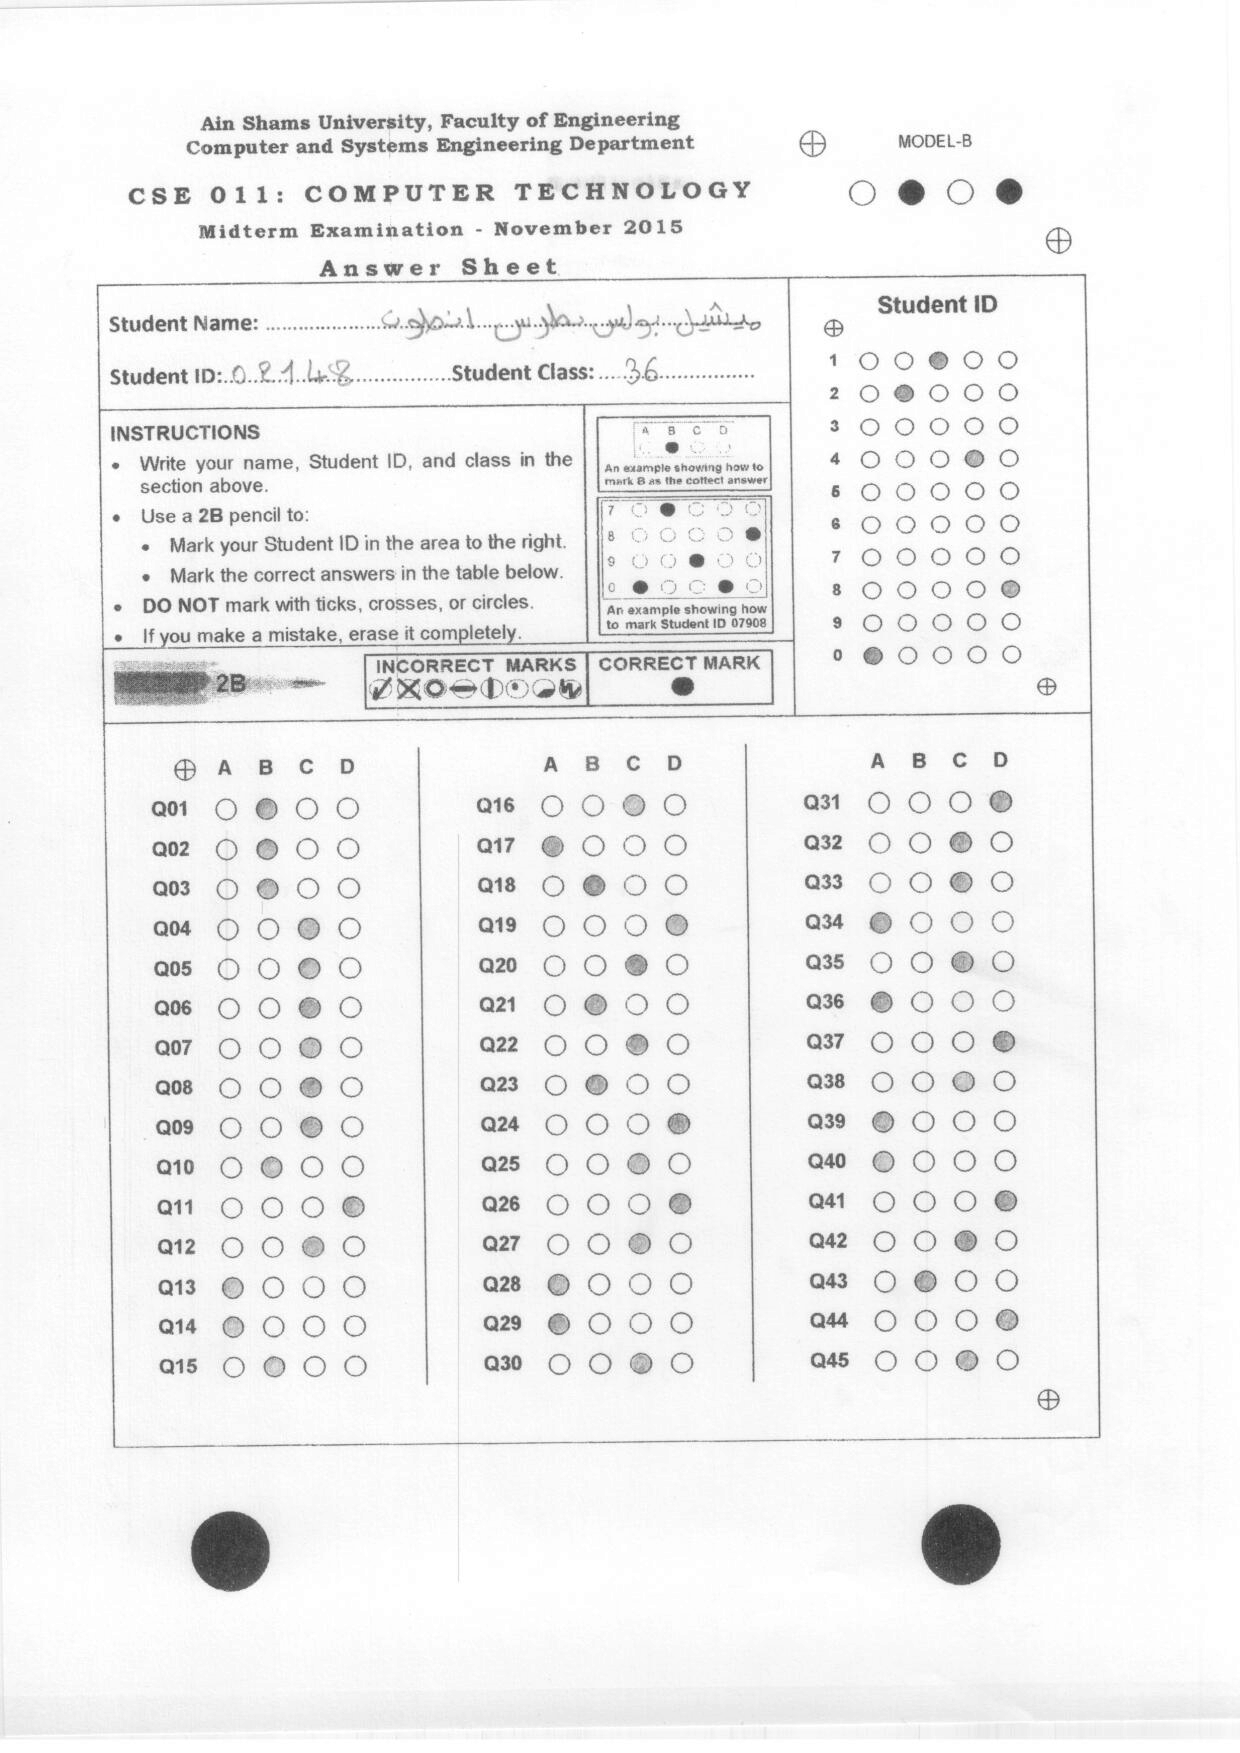 Ain Shams University, Faculty of Engineering
Computer and Systems Engineering Department
MODEL-B
CSE 011: COMPUTER TECHNOLOGY
Midterm Examination - November 2015
Answer Sheet
Student Name: ميشيل بولس بطرس انطون
Student ID: 02148 Student Class: 36
Student ID
1
2
3
4
5
6
7
8
9
0
INSTRUCTIONS
• Write your name, Student ID, and class in the
section above.
• Use a 2B pencil to:
• Mark your Student ID in the area to the right.
• Mark the correct answers in the table below.
• DO NOT mark with ticks, crosses, or circles.
• If you make a mistake, erase it completely.
A B C D
An example showing how to
mark B as the cottect answer
7
8
9
0
An example showing how
to mark Student ID 07908
2B
INCORRECT MARKS
CORRECT MARK
A B C D
Q01
Q02
Q03
Q04
Q05
Q06
Q07
Q08
Q09
Q10
Q11
Q12
Q13
Q14
Q15
A B C D
Q16
Q17
Q18
Q19
Q20
Q21
Q22
Q23
Q24
Q25
Q26
Q27
Q28
Q29
Q30
A B C D
Q31
Q32
Q33
Q34
Q35
Q36
Q37
Q38
Q39
Q40
Q41
Q42
Q43
Q44
Q45